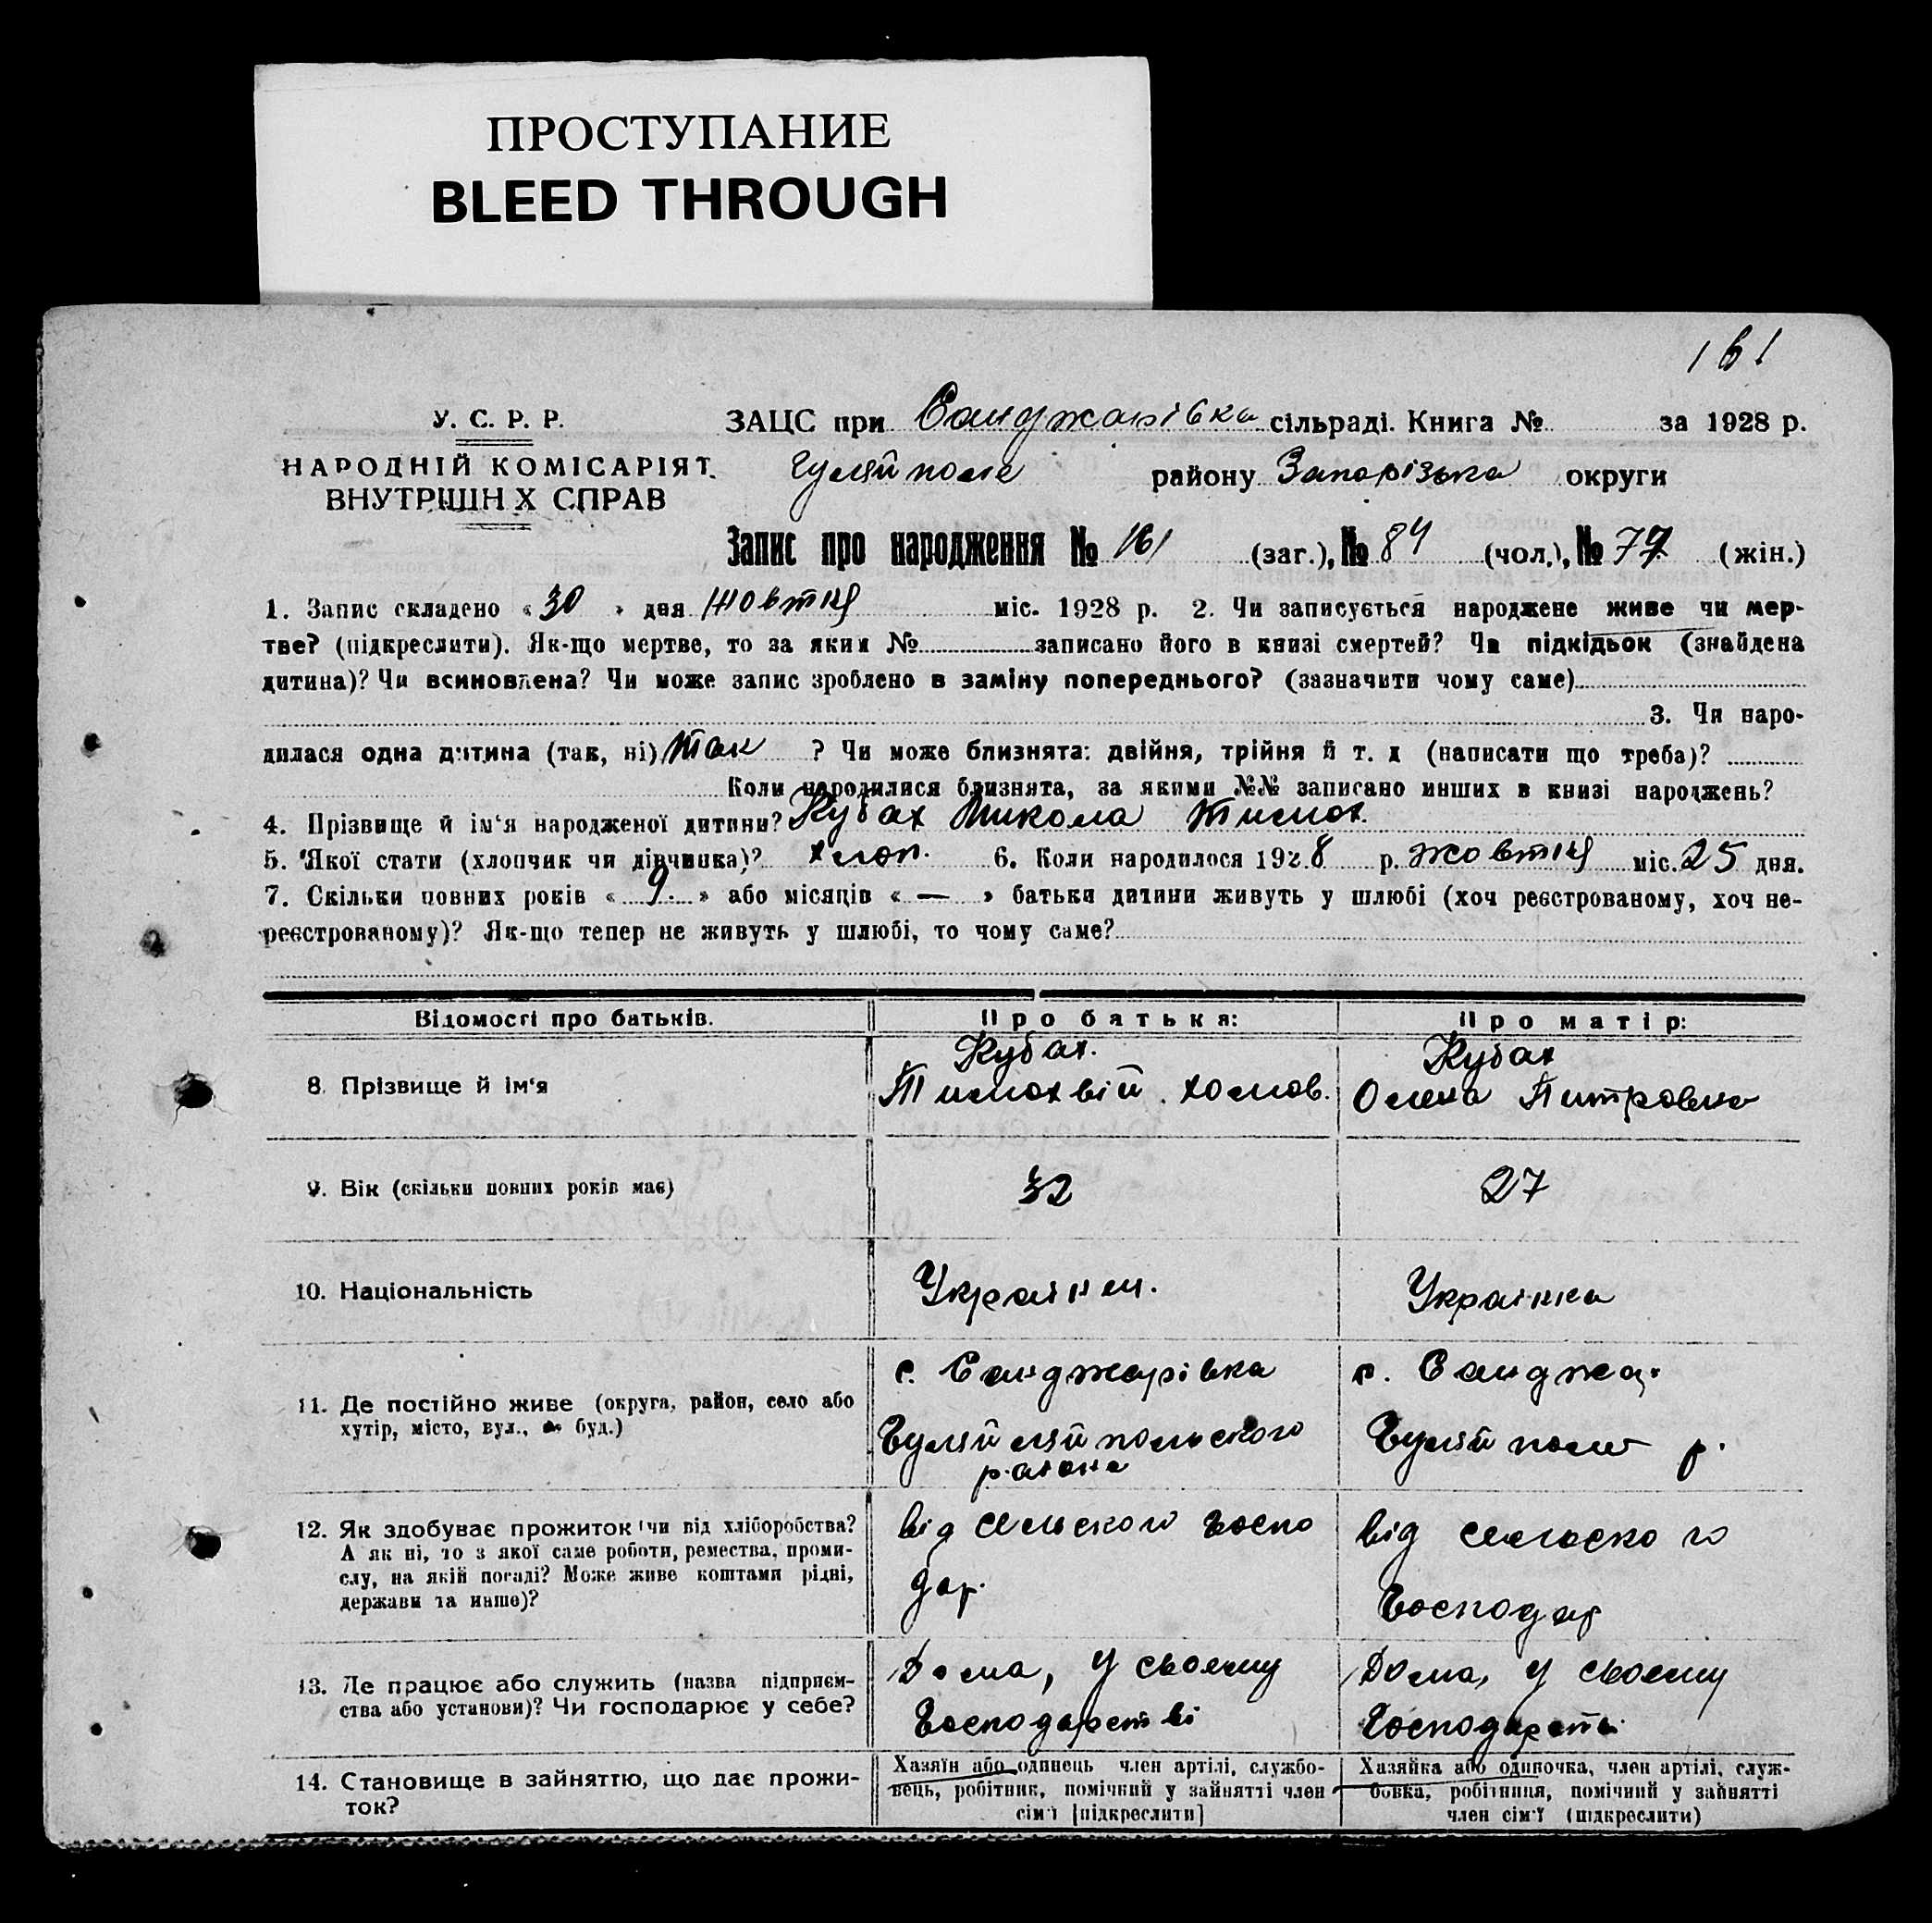 ПРОСТУПАНИЕ
BLEED THROUGH
161
У. С. Р. Р.
НАРОДНІЙ КОМІСАРІЯТ
ВНУТРІШН Х СПРАВ
ЗАЦС при Санджарівка сільраді. Книга № за 1928 р.
Гуляйполе району Запорізька округи
Запис про народження № 161 (заг.), № 84 (чол.), № 77 (жін.)
1. Запис складено « 30 » дня Жовтня міс. 1928 р. 2. Чи записується народжене живе чи мер-
тве? (підкреслити). Як-що мертве, то за яким № записано його в книзі смертей? Чи підкідьок (знайдена
дитина)? Чи всиновлена? Чи може запис зроблено в заміну попереднього? (зазначити чому саме)
3. Чи наро-
дилася одна дитина (так, ні) Так ? Чи може близнята: двійня, трійня й т. д (написати що треба)?
Коли народилися близнята, за якими №№ записано инших в книзі народжень?
4. Прізвище й ім'я народженої дитини? Кубах Микола Тимох.
5. Якої стати (хлопчик чи дівчинка)? хлоп. 6. Коли народилося 1928 р. жовтня міс. 25 дня.
7. Скільки повних років « 9. » або місяців « — » батьки дитини живуть у шлюбі (хоч реєстрованому, хоч не-
реєстрованому)? Як-що тепер не живуть у шлюбі, то чому саме?
Відомості про батьків. Про батька: Про матір:
8. Прізвище й ім'я
Кубах.
Тимохвій Хомов.
Кубах
Олена Питровна
9. Вік (скільки повних років має) 32 27
10. Національність Українец. Українка
11. Де постійно живе (округа, район, село або
хутір, місто, вул., буд.)
с. Санджарівка
Гуляйляйпольского
района
с. Санджар
Гуляйполе р.
12. Як здобуває прожиток (чи від хліборобства?
А як ні, то з якої саме роботи, ремества, проми-
слу, на якій посаді? Може живе коштами рідні,
держави та инше)?
від сельского госпо
дар.
від сельоско го
господар
13. Де працює або служить (назва підприєм-
ства або установи)? Чи господарює у себе?
Дома, у своєму
господарстві
Дома, у своєму
господарстві
14. Становище в зайняттю, що дає прожи-
ток?
Хазяїн або одинець член артілі, службо-
вець, робітник, помічний у зайнятті член
сім'ї [підкреслити]
Хазяйка або одиночка, член артілі, служ-
бовка, робітниця, помічний у зайнятті
член сім'ї (підкреслити)